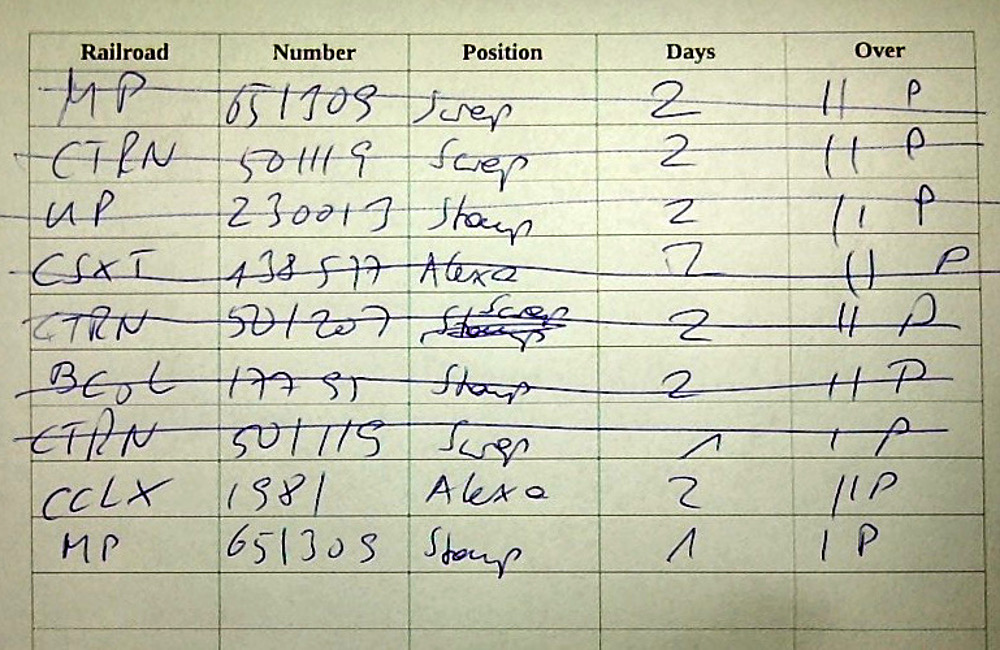 Railroad Number Position Days Over
MP 651309 Scrap 2 11 P
CTRN 501119 Scrap 2 11 P
UP 230013 Stamp 2 11 P
CSXT 138577 Alexa 2 11 P
CTRN 501207 Scrap 2 11 P
BCOL 17795 Stamp 2 11 P
CTRN 501119 Scrap 1 1 P
CCLX 1981 Alexa 2 11 P
MP 651309 Stamp 1 1 P